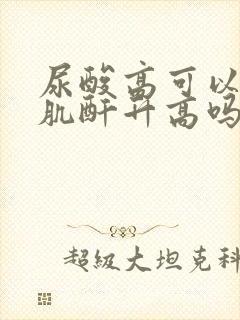 尿酸高可以
肌酐升高吗
超级大坦克科